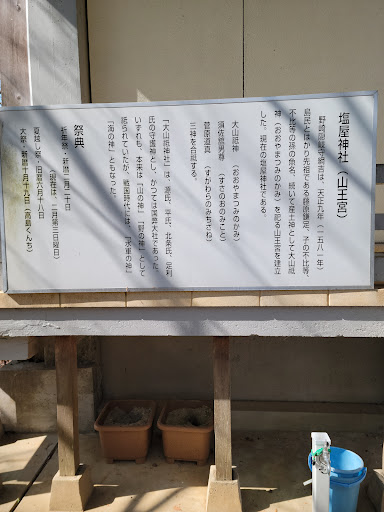 塩屋神社（山王宮）
野崎隠岐守綱吉は、天正九年（一五八一年）
島民とはかり先祖である藤原鎌足、子の不比等、
不比等の孫の魚名、続いて産土神として大山祇
神（おおやまつみのかみ）を祀る山王宮を建立
した。現在の塩屋神社である。
大山祇神　（おおやまつみのかみ）
須佐鳴男尊　（すさのおのみこと）
菅原道真　（すがわらのみちざね）
三神を合祇する。
「大山祇神社」は、源氏、平氏、北条氏、足利
氏の守護神とし、かつては国弊大社であった。
いずれも、本来は「山の神」「野の神」として
祀られていたが、戦国時代には、「水軍の神」
「海の神」ともなった。
祭典
祈年祭・新暦二月二十日
（現在は、二月第三日曜日）
夏越し祭・旧暦六月十八日
大祭・新暦十月十九日（高島くんち）